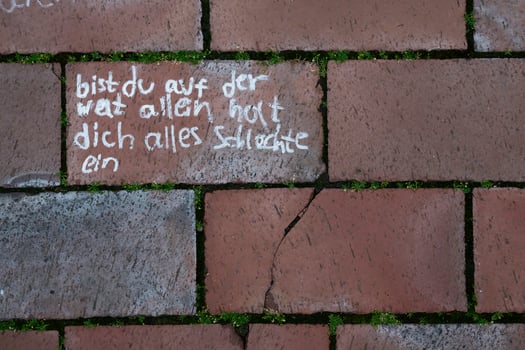 bist du auf der
welt allein holt
dich alles Schlechte
ein